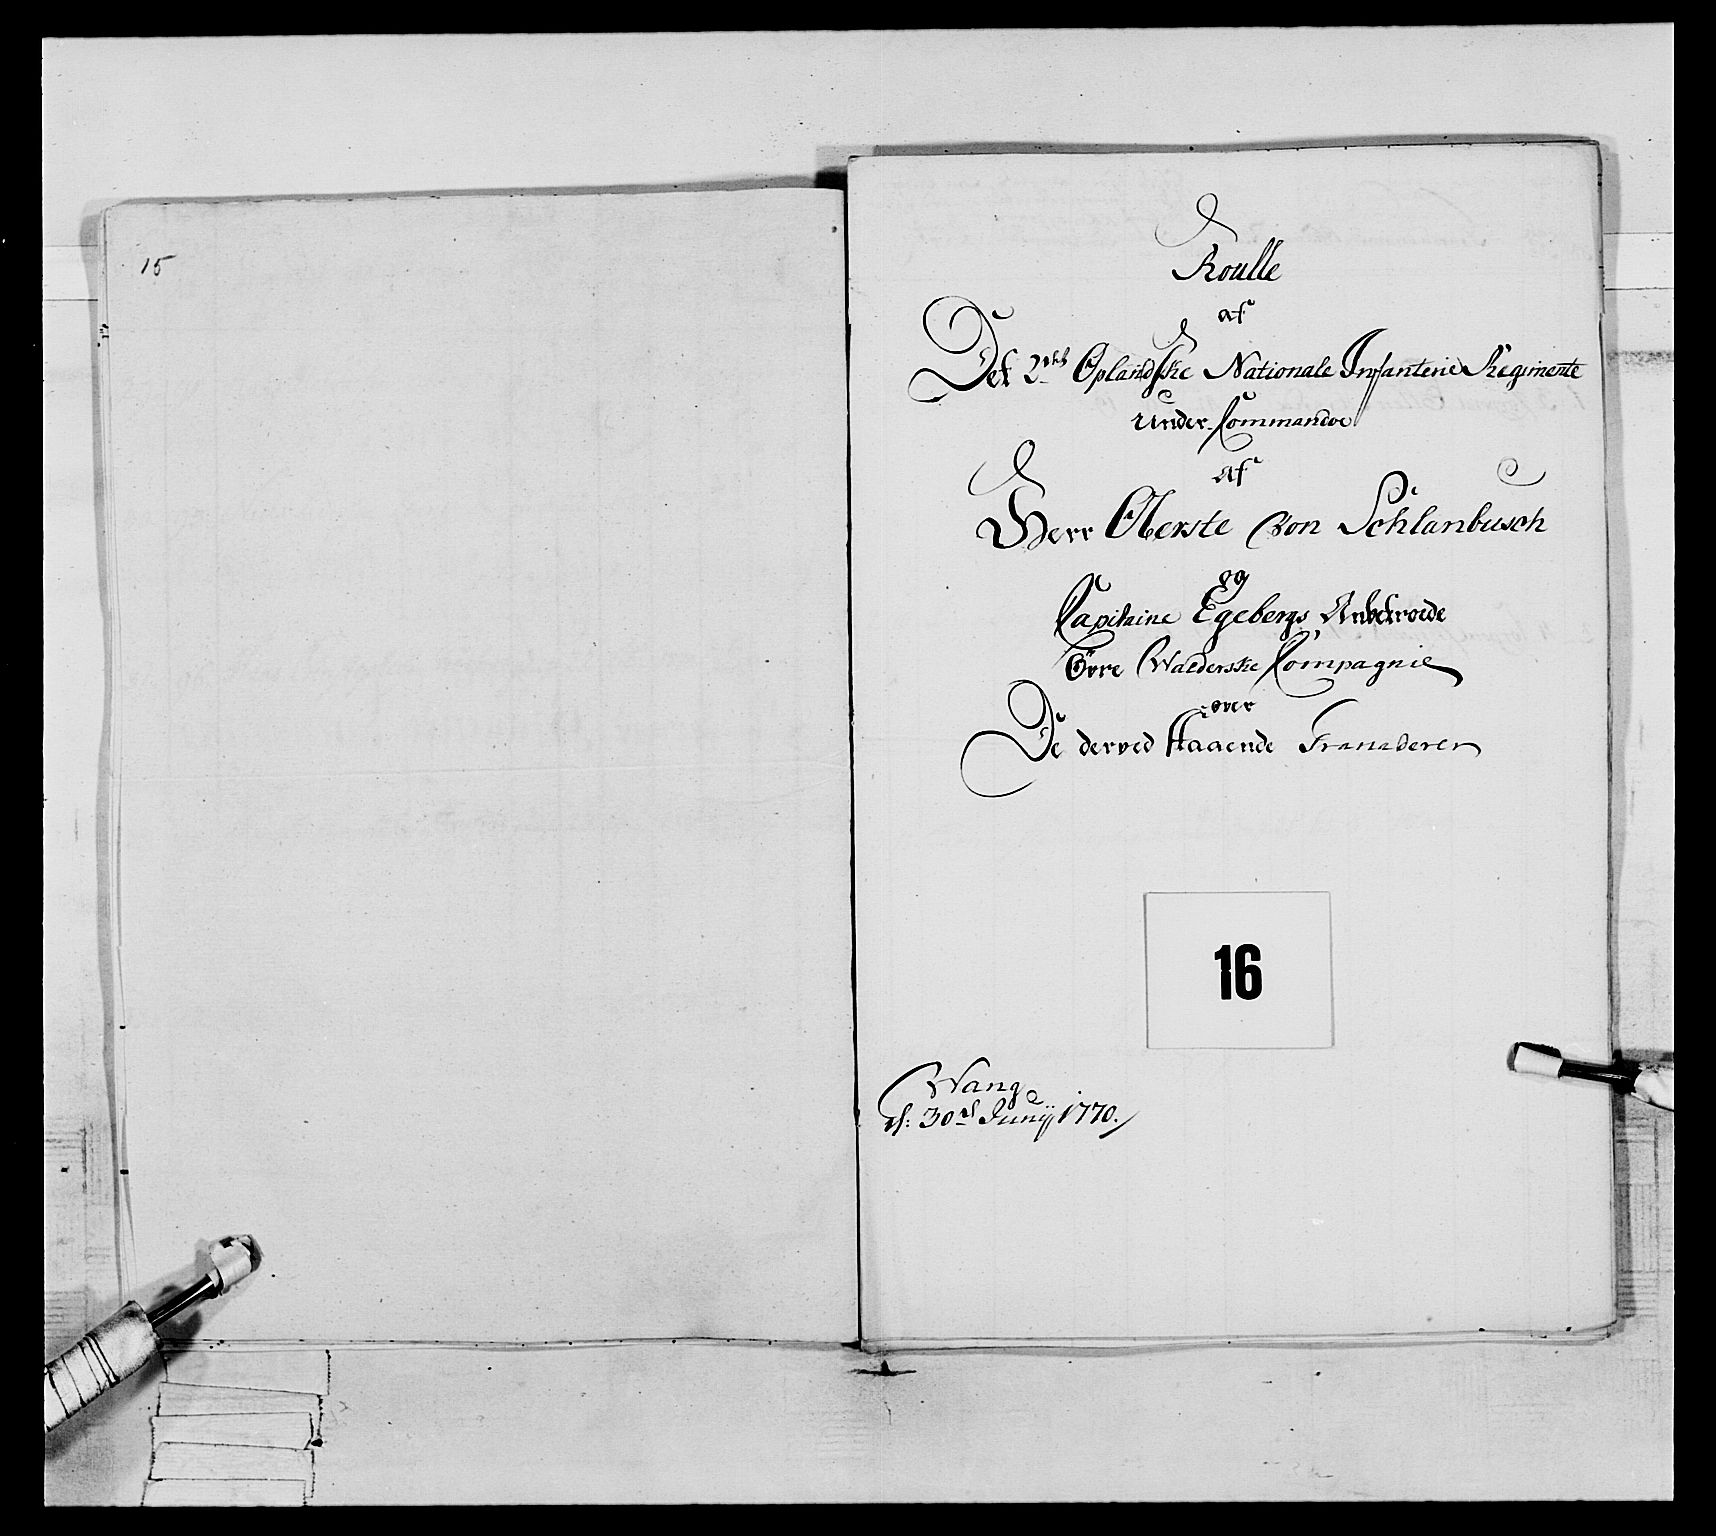 15
Roulle
af
Det 2det Oplandske Nationale Infanterie Regimente
Under Commandoe
Af
Herr Oberste von Schlanbusch
og
Capitaine Egebergs Anbetroede
Övre Walderske Compagnie
over
De derved staaende Granaderer
16
Wang
d: 30d Junÿ 1770.